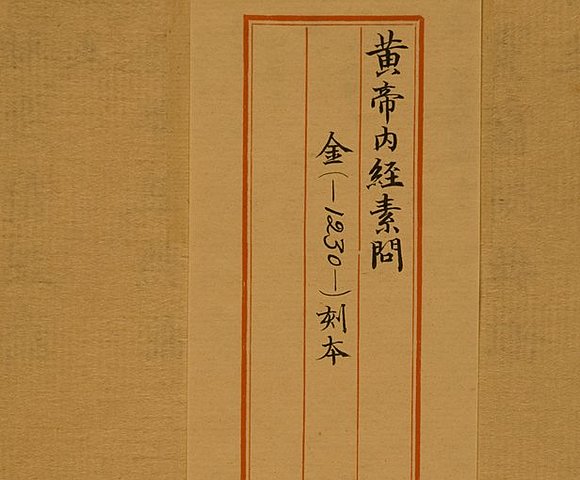 黄帝内経素問
金(—1230—)刻本